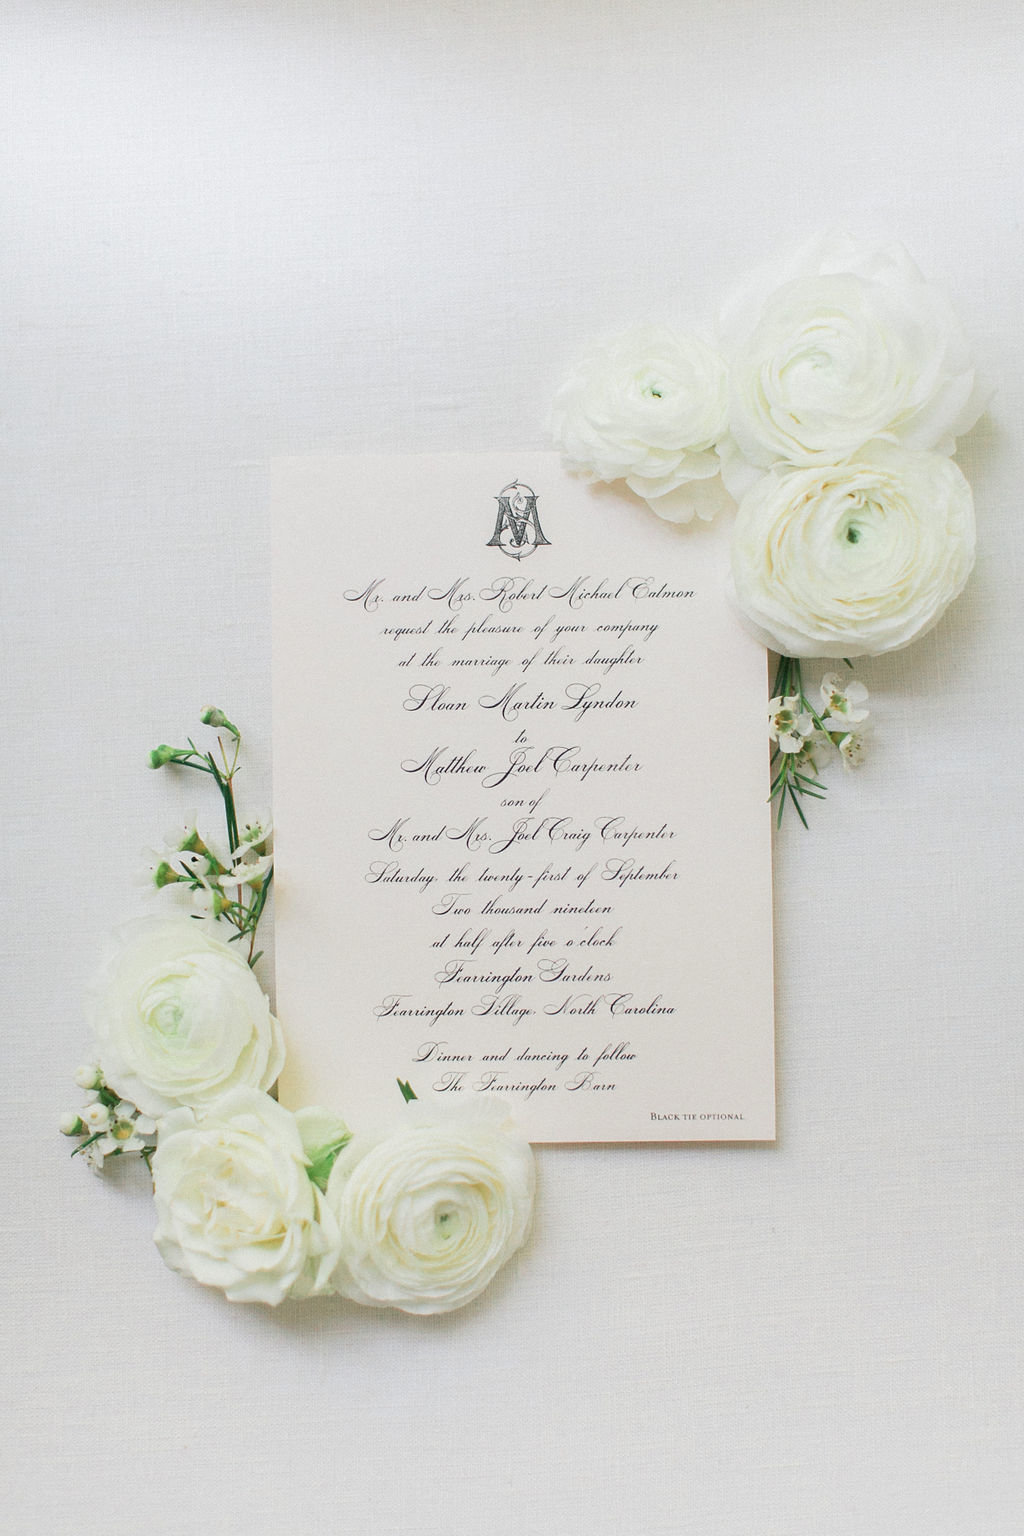 MS
Mr. and Mrs. Robert Michael Eatmon
request the pleasure of your company
at the marriage of their daughter
Sloan Martin Lyndon
to
Matthew Joel Carpenter
son of
Mr. and Mrs. Joel Craig Carpenter
Saturday, the twenty-first of September
Two thousand nineteen
at half after five o'clock
Fearrington Gardens
Fearrington Village, North Carolina
Dinner and dancing to follow
The Fearrington Barn
BLACK TIE OPTIONAL